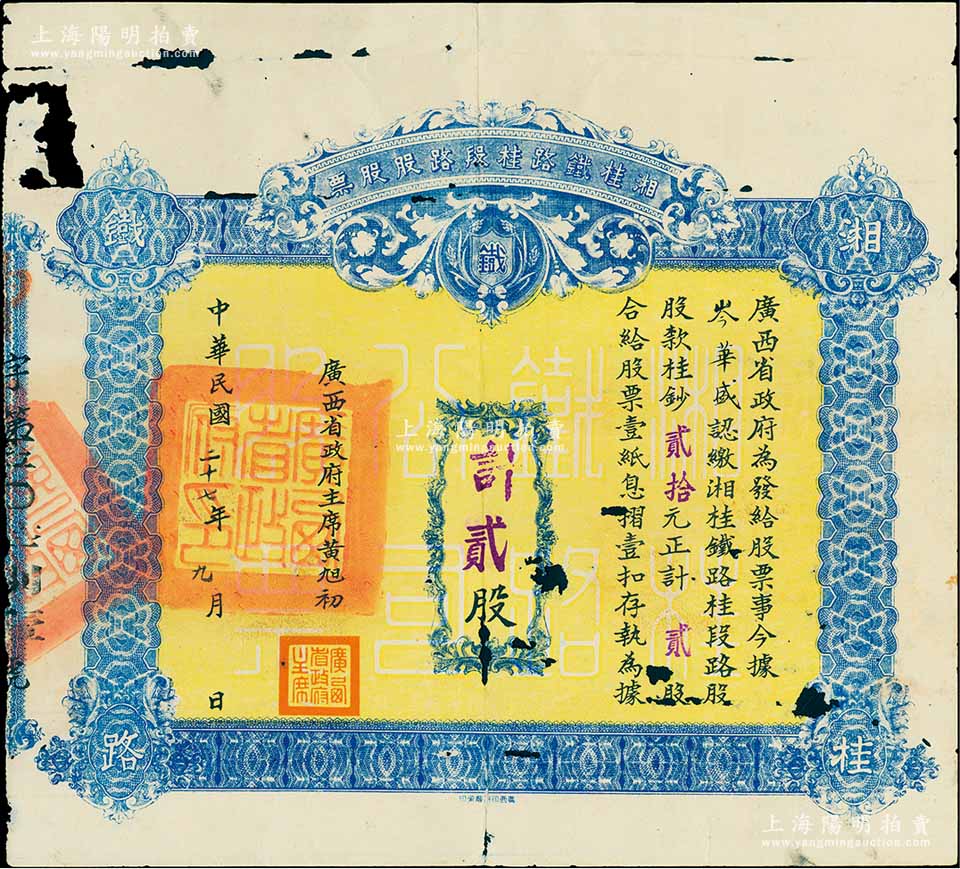 上海陽明拍賣
www.yangmingauction.com
湘桂鐵路桂段路股股票
湘
鐵
鐵
廣西省政府為發給股票事今據
岑華盛認繳湘桂鐵路桂段路股
股款桂鈔貳拾元正計貳股
合給股票壹紙息摺壹扣存執為據
計貳股
上海陽明拍賣
www.yangmingauction.com
廣西省政府主席黃旭初
廣西省政府主席
中華民國二十七年九月 日
字第
桂
路
上海陽明拍賣
www.yangmingauction.com